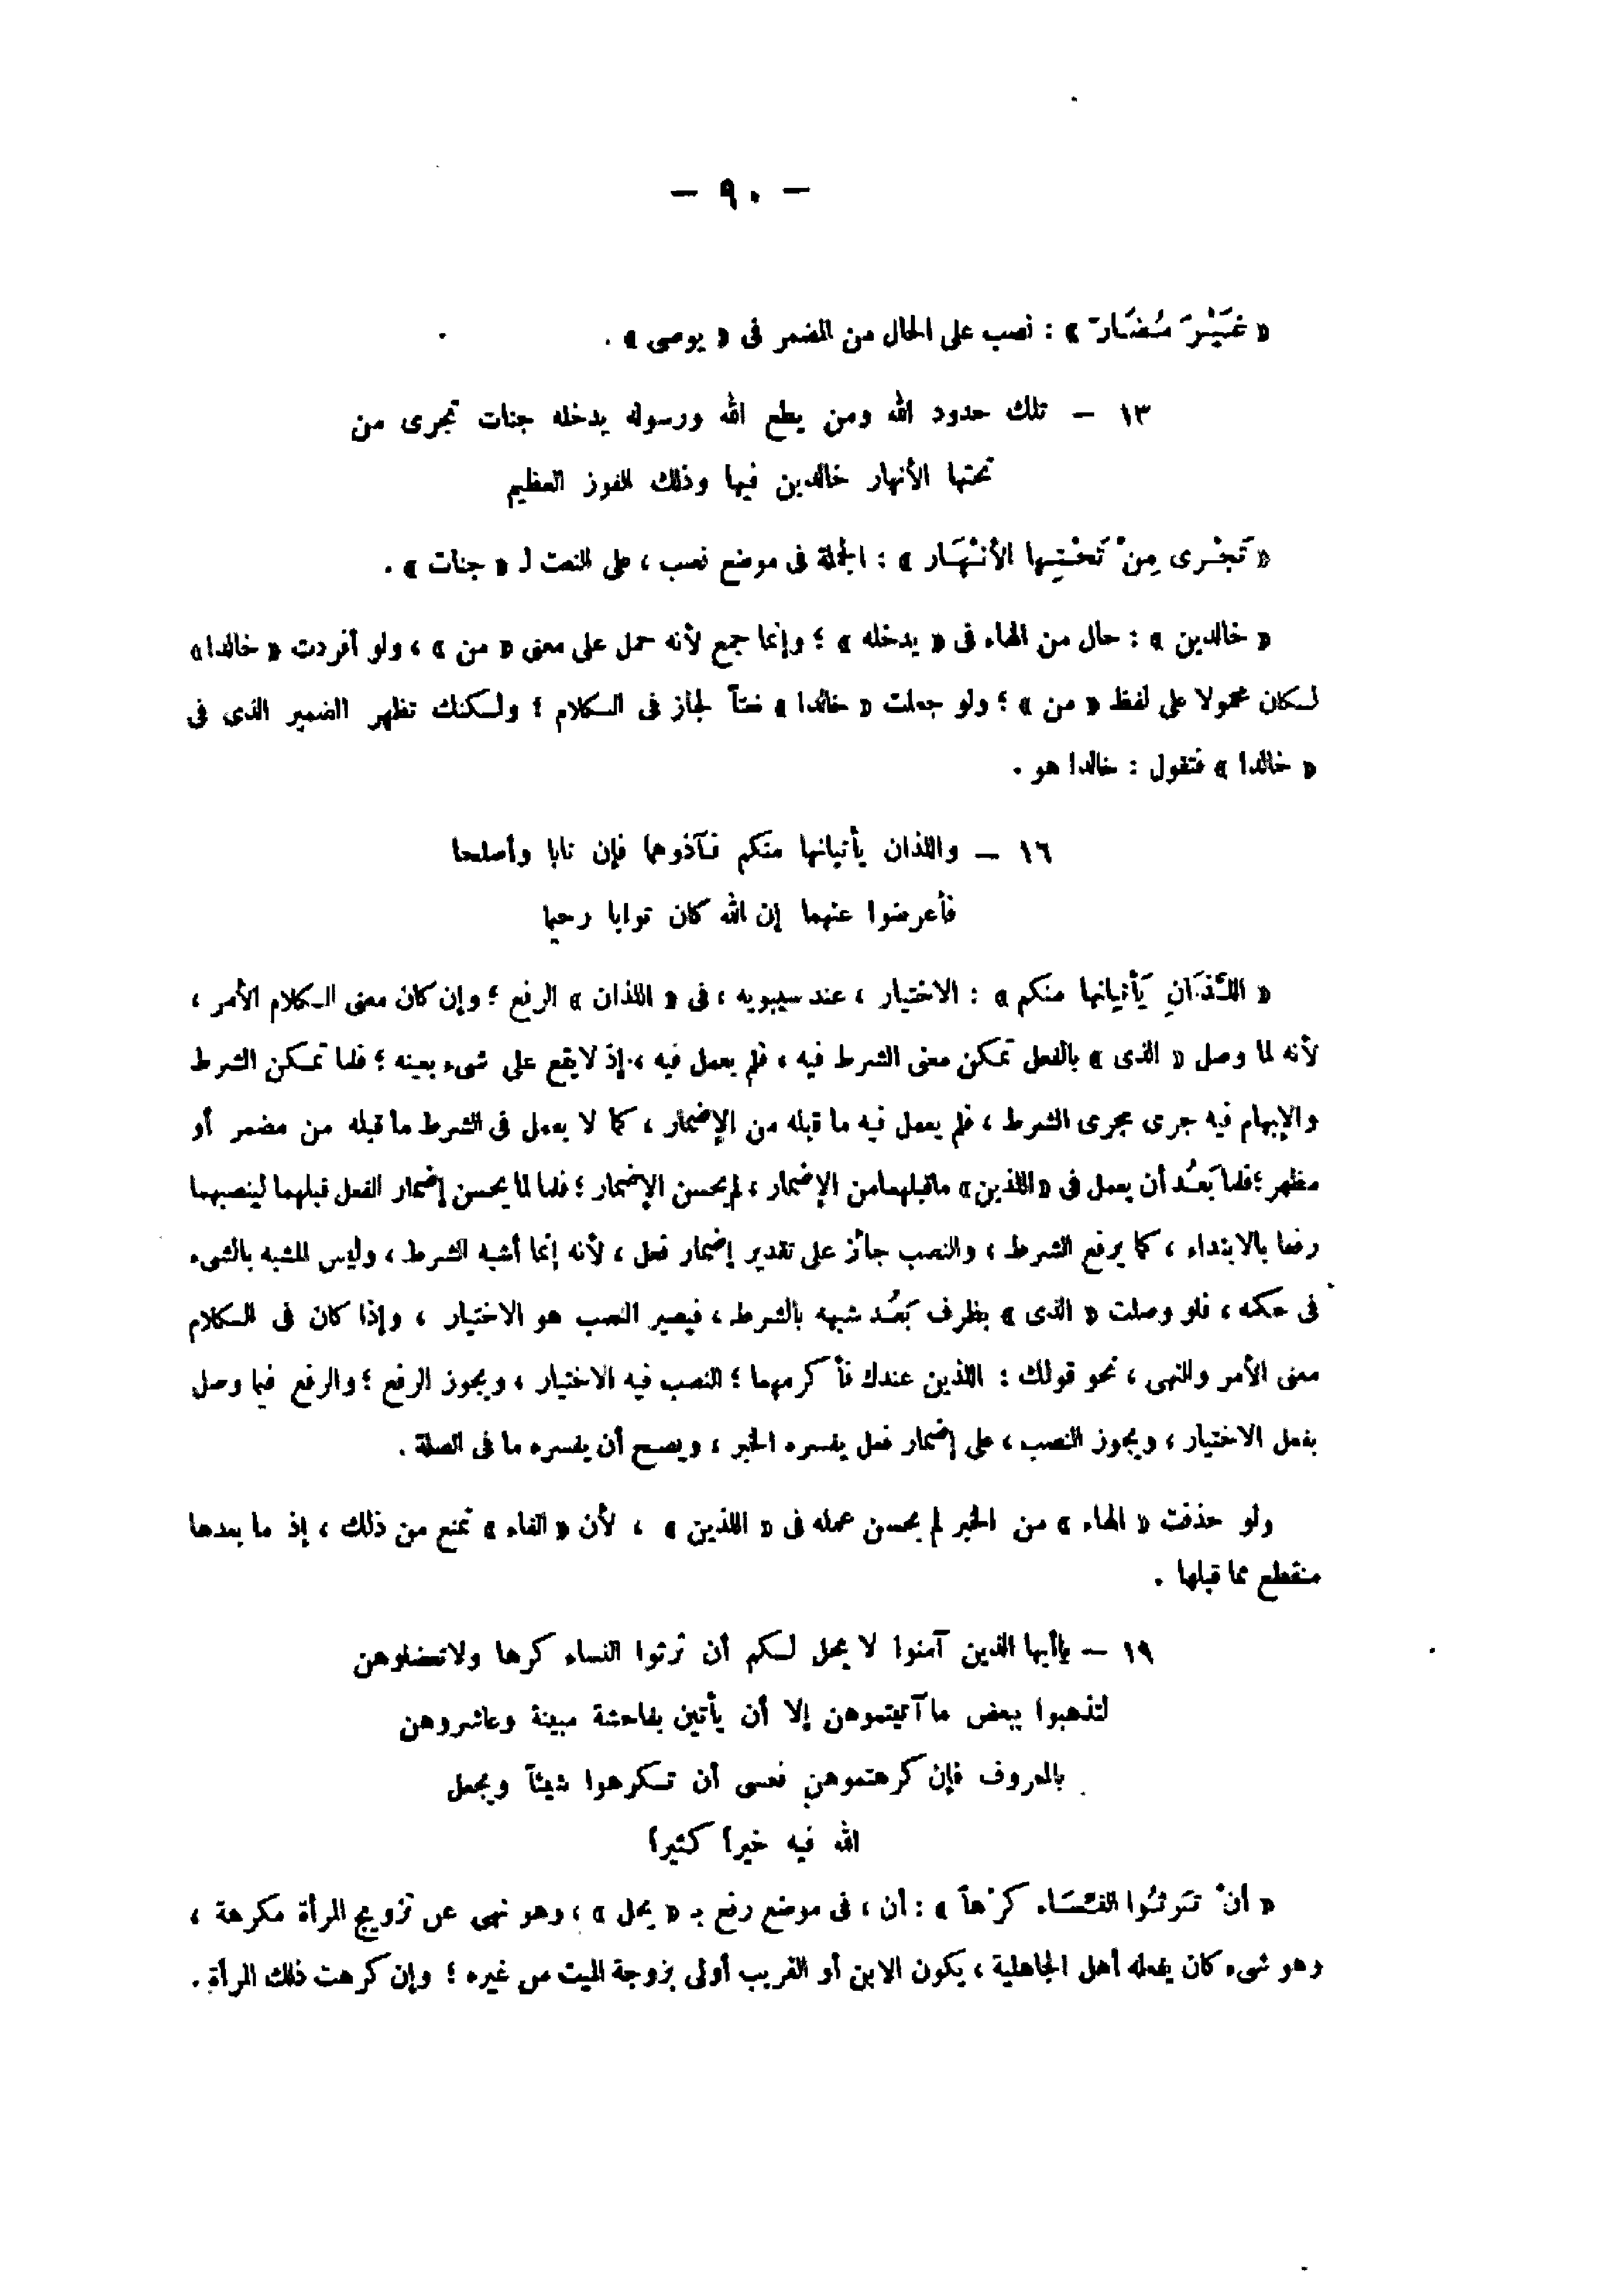 — ٩٠ —
« غَيْرَ مُضَارّ » : نصب على الحال من المضمر فى « يوصى » .
١٣ — تلك حدود الله ومن يطع الله ورسوله يدخله جنات تجرى من
تحتها الأنهار خالدين فيها وذلك الفوز العظيم
« تَجْرى مِنْ تَحْتِها الأنْهَار » : الجملة فى موضع نصب ، على النعت لـ « جنات » .
« خالدين » : حال من الهاء فى « يدخله » ؛ وإنما جمع لأنه حمل على معنى « من » ، ولو أفردت « خالدا »
لكان محمولا على لفظ « من » ؛ ولو جعلت « خالدا » نعتاً لجاز فى الكلام ؛ ولكنك تظهر الضمير الذى فى
« خالدا » فتقول : خالدا هو .
١٦ — واللذان يأتيانها منكم فآذوهما فإن تابا وأصلحا
فأعرضوا عنهما إن الله كان توابا رحيما
« اللَّذَانِ يَأتيانها منكم » : الاختيار ، عند سيبويه ، فى « اللذان » الرفع ؛ وإن كان معنى الكلام الأمر ،
لأنه لما وصل « الذى » بالفعل تمكن معنى الشرط فيه ، فلم يعمل فيه ، إذ لا يقع على شىء بعينه ؛ فلما تمكن الشرط
والإبهام فيه جرى مجرى الشرط ، فلم يعمل فيه ما قبله من الإضمار ، كما لا يعمل فى الشرط ما قبله من مضمر أو
مظهر ؛ فلما بَعُد أن يعمل فى « اللذين » ماقبلهما من الإضمار ، لم يحسن الإضمار ؛ فلما لما يحسن إضمار الفعل قبلهما لينصبهما
رفعا بالابتداء ، كما يرفع الشرط ، والنصب جائز على تقدير إضمار فعل ، لأنه إنما أشبه الشرط ، وليس المشبه بالشىء
فى حكمه ، فلو وصلت « الذى » بظرف بَعُد شبهه بالشرط ، فيصير النصب هو الاختيار ، وإذا كان فى الكلام
معنى الأمر والنهى ، نحو قولك : اللذين عندك فأكرمهما ؛ النصب فيه الاختيار ، ويجوز الرفع ؛ والرفع فيما وصل
بفعل الاختيار ، ويجوز النصب ، على إضمار فعل يفسره الخبر ، ويصح أن يفسره ما فى الصلة .
ولو حذفت « الهاء » من الخبر لم يحسن عمله فى « اللذين » ، لأن « الفاء » تمنع من ذلك ، إذ ما بعدها
منقطع مما قبلها .
١٩ — ياأيها الذين آمنوا لا يحل لكم أن ترثوا النساء كرها ولاتعضلوهن
لتذهبوا ببعض ماآتيتموهن إلا أن يأتين بفاحشة مبينة وعاشروهن
بالمعروف فإن كرهتموهن فعسى أن تكرهوا شيئاً ويجعل
الله فيه خيراً كثيراً
« أنْ تَرِثُوا النِّسَاء كَرْهاً » : أن ، فى موضع رفع بـ « يحل » ، وهو نهى عن تزويج المرأة مكرهة ،
وهو شىء كان يفعله أهل الجاهلية ، يكون الابن أو القريب أولى بزوجة الميت من غيره ؛ وإن كرهت ذلك المرأة .